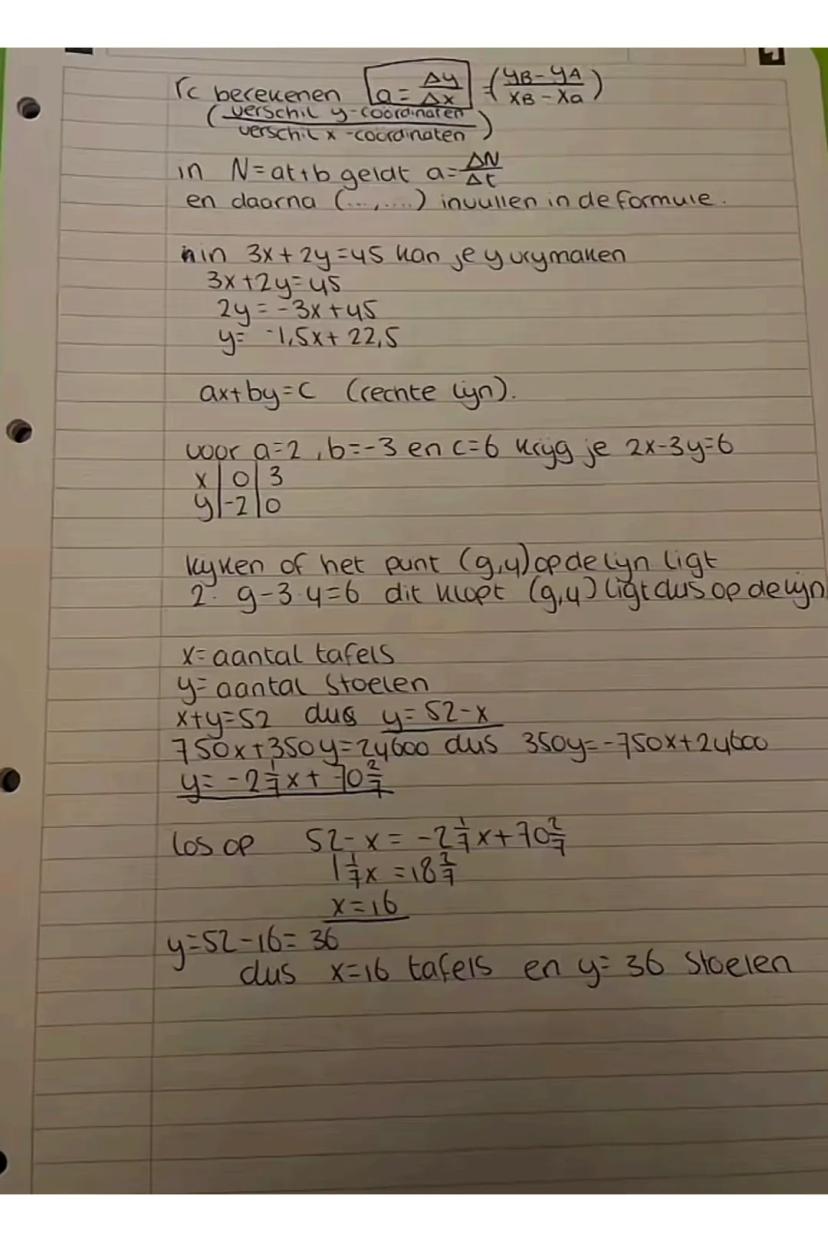 rc berekenen a = Δy/Δx = (yB - yA / xB - xa)
(verschil y-coördinaten / verschil x-coördinaten)
in N = at + b geldt a = ΔN/Δt
en daarna (...,....) invullen in de formule.
in 3x + 2y = 45 kan je y vrijmaken
3x + 2y = 45
2y = -3x + 45
y = -1,5x + 22,5
ax + by = c (rechte lijn).
voor a = 2, b = -3 en c = 6 krijg je 2x - 3y = 6
x | 0 | 3
y | -2 | 0
kijken of het punt (9,4) op de lijn ligt
2 · 9 - 3 · 4 = 6 dit klopt (9,4) ligt dus op de lijn
x = aantal tafels
y = aantal stoelen
x + y = 52 dus y = 52 - x
750x + 350y = 24600 dus 350y = -750x + 24600
y = -2 1/7 x + 70 2/7
los op 52 - x = -2 1/7 x + 70 2/7
1 1/7 x = 18 2/7
x = 16
y = 52 - 16 = 36
dus x = 16 tafels en y = 36 stoelen